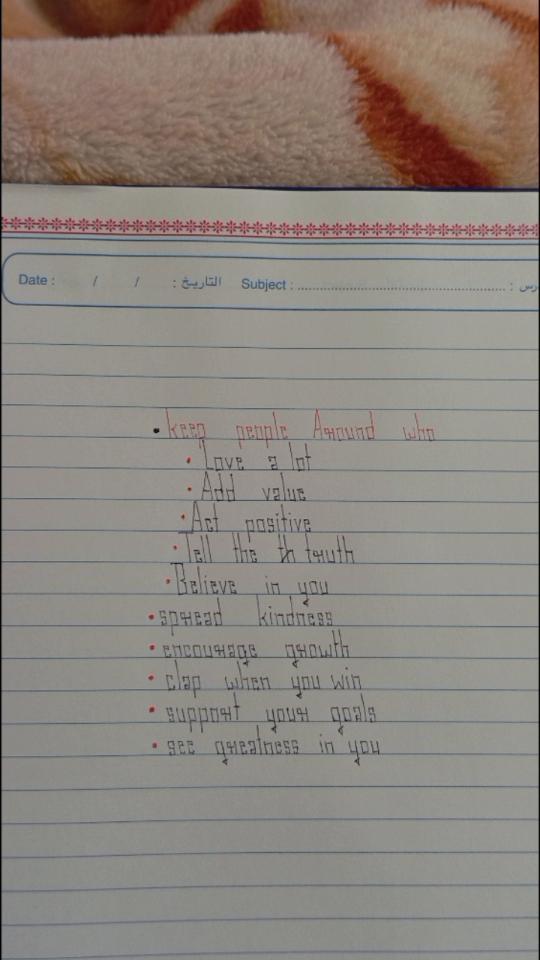 Date : / / : التاريخ Subject : ........................................................ :
• keep people Around who
• Love a lot
• Add value
• Act positive
• Tell the th truth
• Believe in you
• spread kindness
• encourage growth
• clap when you win
• support your goals
• see greatness in you